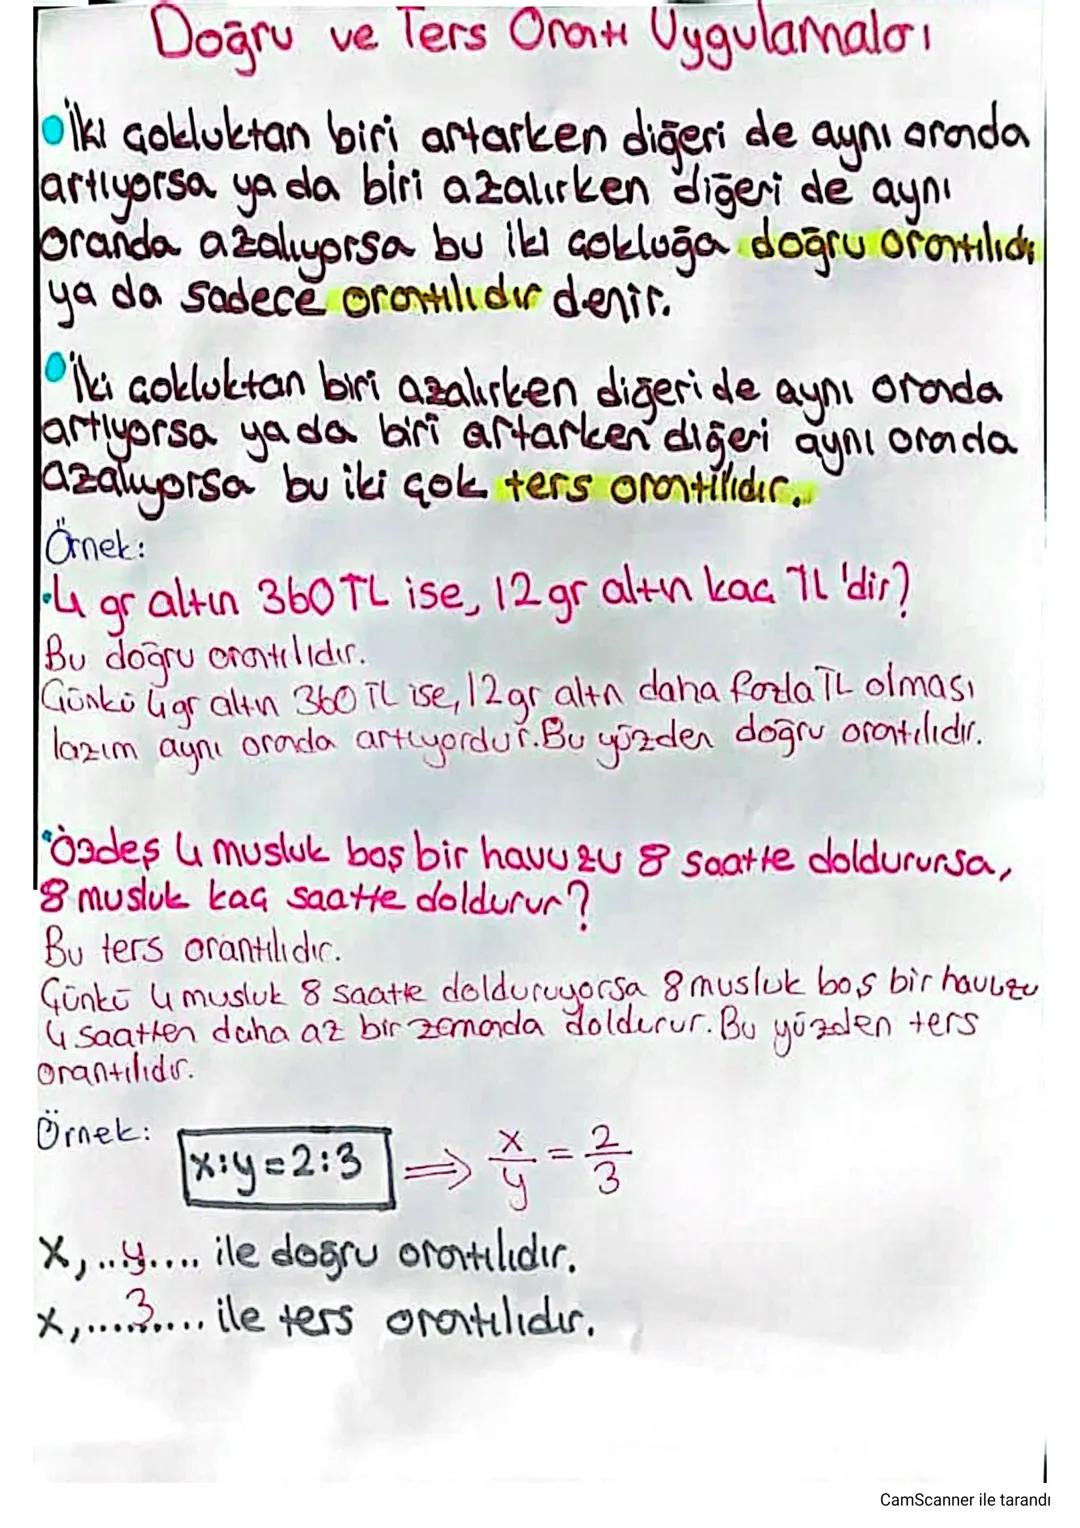 Doğru ve Ters Orantı Uygulamaları
İki çokluktan biri artarken diğeri de aynı oranda
artıyorsa ya da biri azalırken diğeri de aynı
oranda azalıyorsa bu iki çokluğa doğru orantılıdır
ya da sadece orantılıdır denir.
İki çokluktan biri azalırken diğeri de aynı oranda
artıyorsa ya da biri artarken diğeri aynı oranda
azalıyorsa bu iki çok ters orantılıdır.
Örnek:
4 gr altın 360 TL ise, 12 gr altın kaç TL'dir?
Bu doğru orantılıdır.
Çünkü 4 gr altın 360 TL ise, 12 gr altın daha fazla TL olması
lazım aynı oranda artıyordur. Bu yüzden doğru orantılıdır.
Özdeş 4 musluk boş bir havuzu 8 saatte doldurursa,
8 musluk kaç saatte doldurur?
Bu ters orantılıdır.
Çünkü 4 musluk 8 saatte dolduruyorsa 8 musluk boş bir havuzu
4 saatten daha az bir zamanda doldurur. Bu yüzden ters
orantılıdır.
Örnek:
x:y=2:3 ⇒ x/y = 2/3
x, ..y.... ile doğru orantılıdır.
x, ....3.... ile ters orantılıdır.
CamScanner ile tarandı